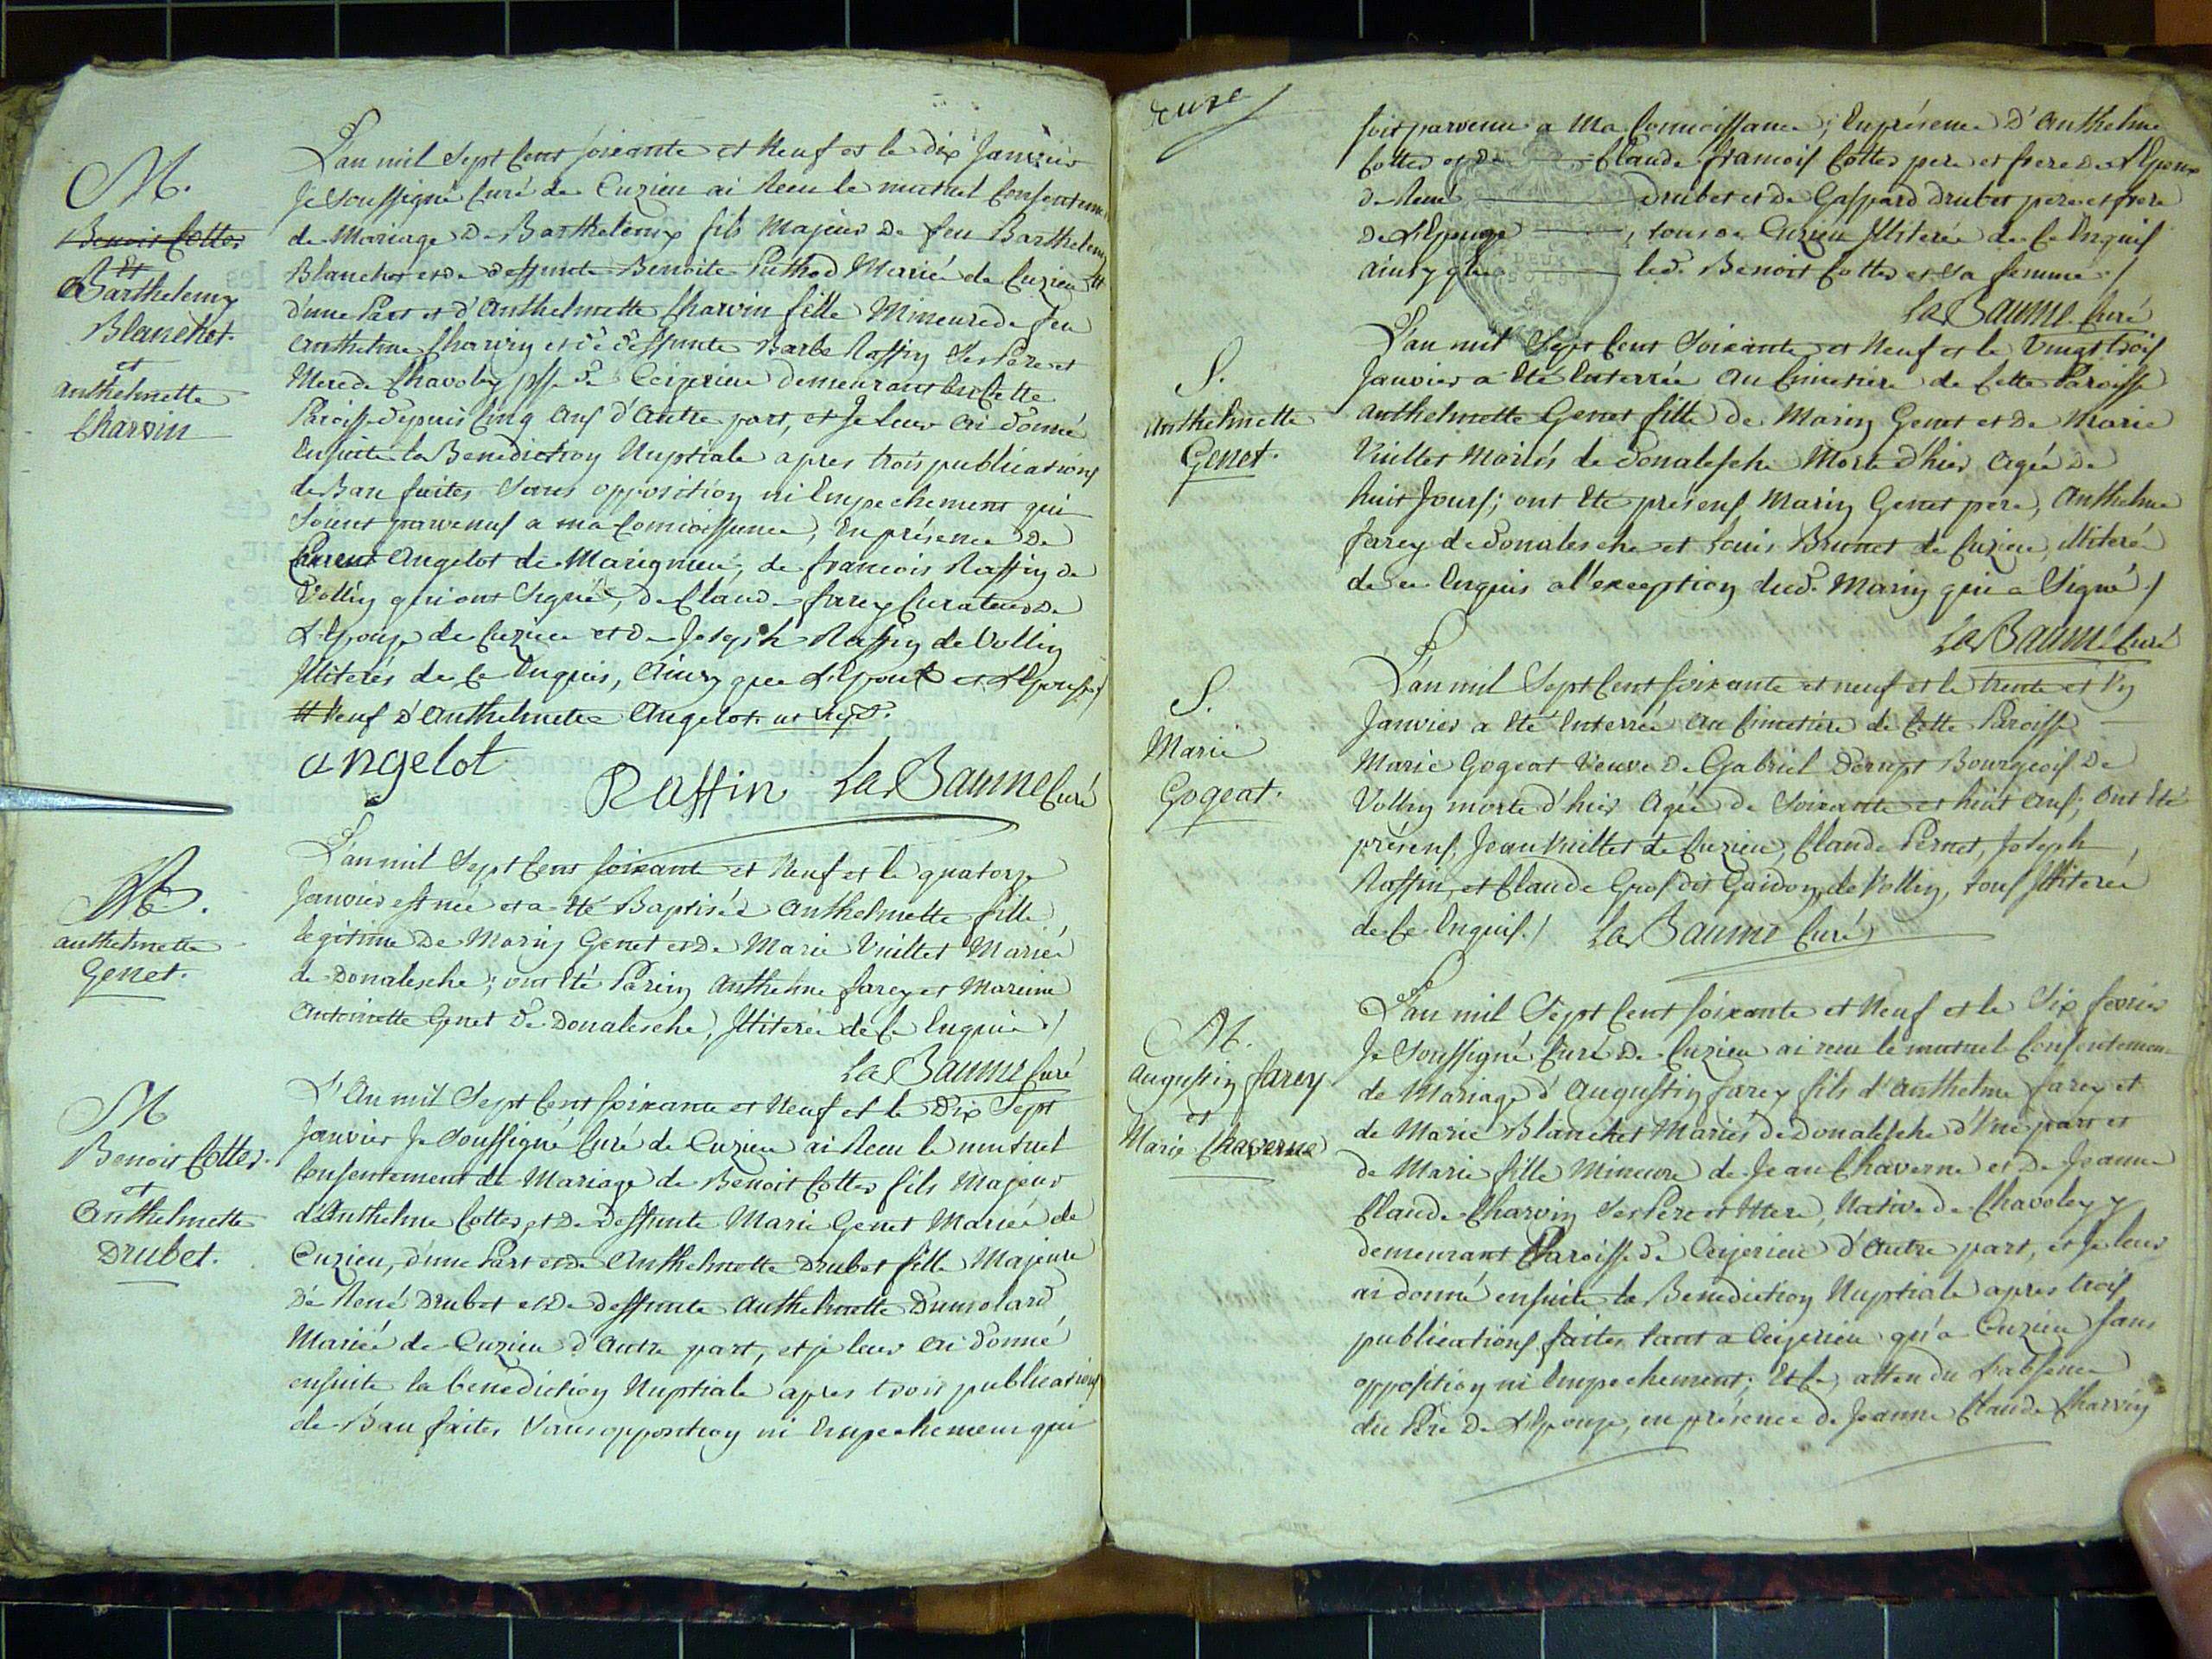 M.
Benoit Cottes
Et
Barthelemy
Blanchet.
et
anthelmette
Charvin
L'an mil Sept Cent soixante et Neuf et le dix Janvier
Je soussigné Curé de Cuzieu ai Recu le mutuel Consentement
de Mariage de Barthelemy fils Majeur de feu Barthelemy
Blanchet et de deffunte Benoite Puthod Mariés de Cuzieu #
d'une Part et d'Anthelmette Charvin fille Mineure de feu
Anthelme Charvin et de deffunte Barbe Raffin Ses Pere et
Mere de Chavoley psse de Ceizerieu demeurant en Cette
Paroisse depuis Cinq ans d'Autre part, et Je Leur ai donné
Ensuite la Benediction Nuptiale apres trois publications
de Ban faites Sans opposition ni Empechement qui
Soient parvenus a ma Connoissance, En présence de
Angelot de Marignieu, de francois Raffin de
Vollin qui ont Signé, de Claude farey Curateur de
L'Epouse de Cuzieu et de Joseph Raffin de Vollin
Illiterés de Ce Enquis, Ainsy que L'Epoux et L'Epouse /
# Veuf d'Anthelmette Angelot.
angelot
Raffin La Baume Curé
B.
anthelmette
Genet.
L'an mil Sept Cens soixante et Neuf et le quatorze
Janvier est née et a Eté Baptisée Anthelmette fille
legitime de Marin Genet et de Marie Vuillet Mariés
de Donalesche; ont Eté Parein Anthelme farey et Mareine
Antoinette Genet de Donalesche, Illiterés de Ce Enquis /
La Baume Curé
M
Benoit Cottes.
et
Anthelmette
Drubet.
L'An mil Sept Cent soixante et Neuf et le Dix Sept
Janvier Je soussigné Curé de Cuzieu ai Recu le mutuel
Consentement de Mariage de Benoit Cottes fils Majeur
d'Anthelme Cottes, et de deffunte Marie Genet Mariés de
Cuzieu, d'une Part et de Anthelmette Drubet fille Majeure
de René Drubet et de deffunte Anthelmette Dumolard
Mariés de Cuzieu d'Autre part, et je leur ai donné
ensuite la benediction Nuptiale apres trois publications
de Ban faites Sans opposition ni Empechement qui
deuze
soit parvenu a Ma Connoissance; En présence D'Anthelme
Cottes et de Claude francois Cottes pere et frere de L'Epoux
de René Drubet et de Gaspard Drubet pere et frere
de L'Epouse, tous de Cuzieu Illiterés de Ce Enquis
ainsy que led. Benoit Cottes et sa femme /
La Baume Curé
DEUX
SOLS
S.
Anthelmette
Genet.
L'an mil Sept Cent Soixante et Neuf et le Vingt trois
Janvier a Eté Enterrée Au Cimetiere de Cette Paroisse
Anthelmette Genet fille de Marin Genet et de Marie
Vuillet Mariés de Donalesche Morte d'hier Agée de
huit Jours; ont Eté présens Marin Genet pere, Anthelme
farey de Donalesche et Louis Brunet de Cuzieu, illiterés
de ce Enquis a l'exception dud. Marin qui a Signé /
La Baume Curé
S.
Marie
Gogeat.
L'an mil Sept Cent soixante et neuf et le trente et Un
Janvier a Eté Enterrée Au Cimetiere de Cette Paroisse
Marie Gogeat Veuve de Gabriel Bourgeois de
Vollin morte d'hier Agée de Soixante et huit Ans; Ont Eté
présens, Jean Vuillet de Cuzieu, Claude Pernet, Joseph
Raffin, et Claude Gros dit Gaidon, de Vollin, tous Illiterés
de Ce Enquis / La Baume Curé
M.
Augustin farey
et
Marie Chaverne
L'an mil Sept Cent soixante et Neuf et le Six fevrier
Je soussigné Curé de Cuzieu ai recu le mutuel Consentement
de Mariage d'Augustin farey fils d'Anthelme farey et
de Marie Blanchet Mariés de Donalesche d'Une part et
de Marie fille Mineure de Jean Chaverne et de Jeanne
Claude Charvin Ses Pere et Mere, Native de Chavoley y
demeurant Paroisse de Ceizerieu d'Autre part, et Je leur
ai donné ensuite la Benediction Nuptiale apres trois
publications faites tant a Ceizerieu qu'a Cuzieu sans
opposition ni Empechement; Et Ce, attendu L'absence
du Pere de L'Epouse, en présence de Jeanne Claude Charvin